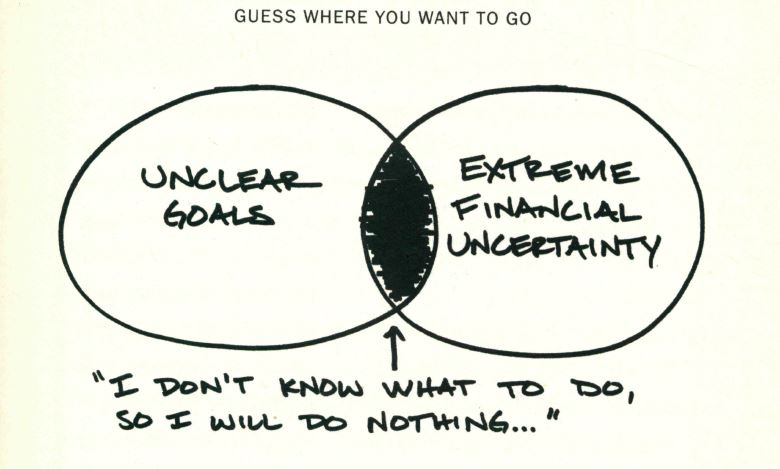 GUESS WHERE YOU WANT TO GO
UNCLEAR
GOALS
EXTREME
FINANCIAL
UNCERTAINTY
"I DON'T KNOW WHAT TO DO,
SO I WILL DO NOTHING..."